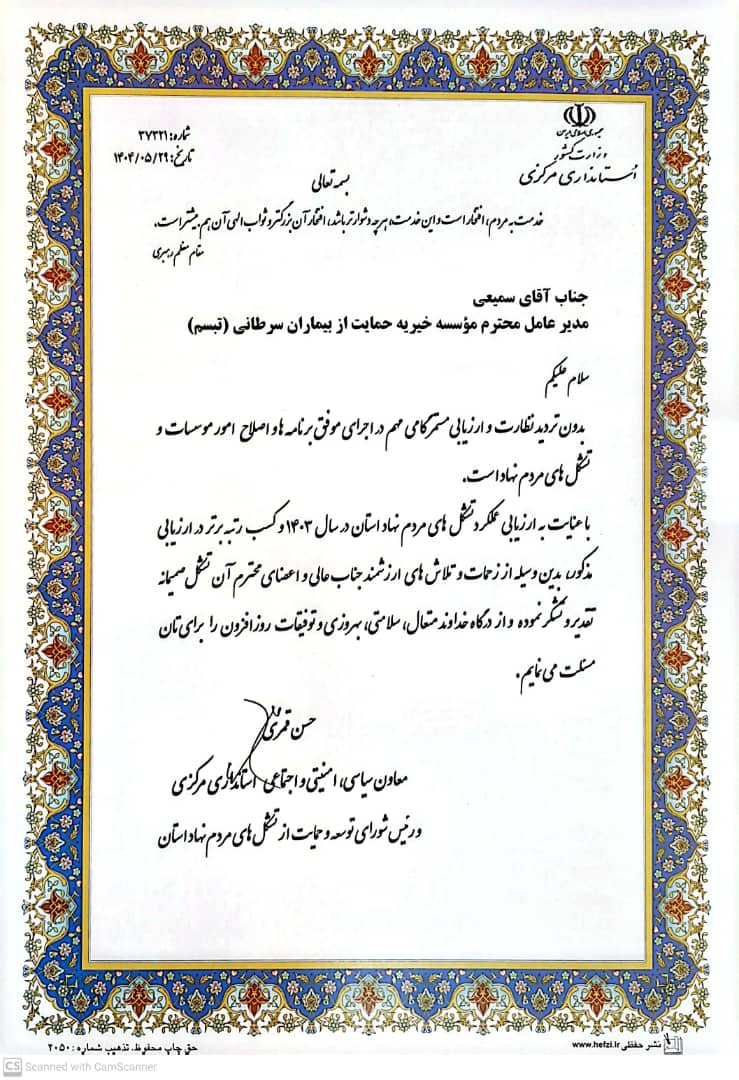 جمهوری اسلامی ایران
وزارت کشور
استانداری مرکزی
شماره: ۳۷۳۲۱
تاریخ: ۱۴۰۴/۰۵/۲۹
بسمه تعالی
خدمت به مردم، افتخار است و این خدمت، هر چه دشوارتر باشد، افتخار آن بزرگتر و ثواب الهی آن هم بیشتر است.
مقام معظم رهبری
جناب آقای سمیعی
مدیر عامل محترم مؤسسه خیریه حمایت از بیماران سرطانی (تبسم)
سلام علیکم
بدون تردید نظارت و ارزیابی مستمر گامی مهم در اجرای موفق برنامه ها و اصلاح امور موسسات و
تشکل های مردم نهاد است.
با عنایت به ارزیابی عملکرد تشکل های مردم نهاد استان در سال ۱۴۰۳ و کسب رتبه برتر در ارزیابی
مذکور، بدین وسیله از زحمات و تلاش های ارزشمند جناب عالی و اعضای محترم آن تشکل صمیمانه
تقدیر و تشکر نموده و از درگاه خداوند متعال، سلامتی، بهروزی و توفیقات روز افزون را برای تان
مسئلت می نمایم.
حسن قمری
معاون سیاسی، امنیتی و اجتماعی استانداری مرکزی
و رئیس شورای توسعه و حمایت از تشکل های مردم نهاد استان
نشر حفظی www.hefzi.ir
حق چاپ محفوظ. تذهیب شماره: ۲۰۵۰
CS Scanned with CamScanner